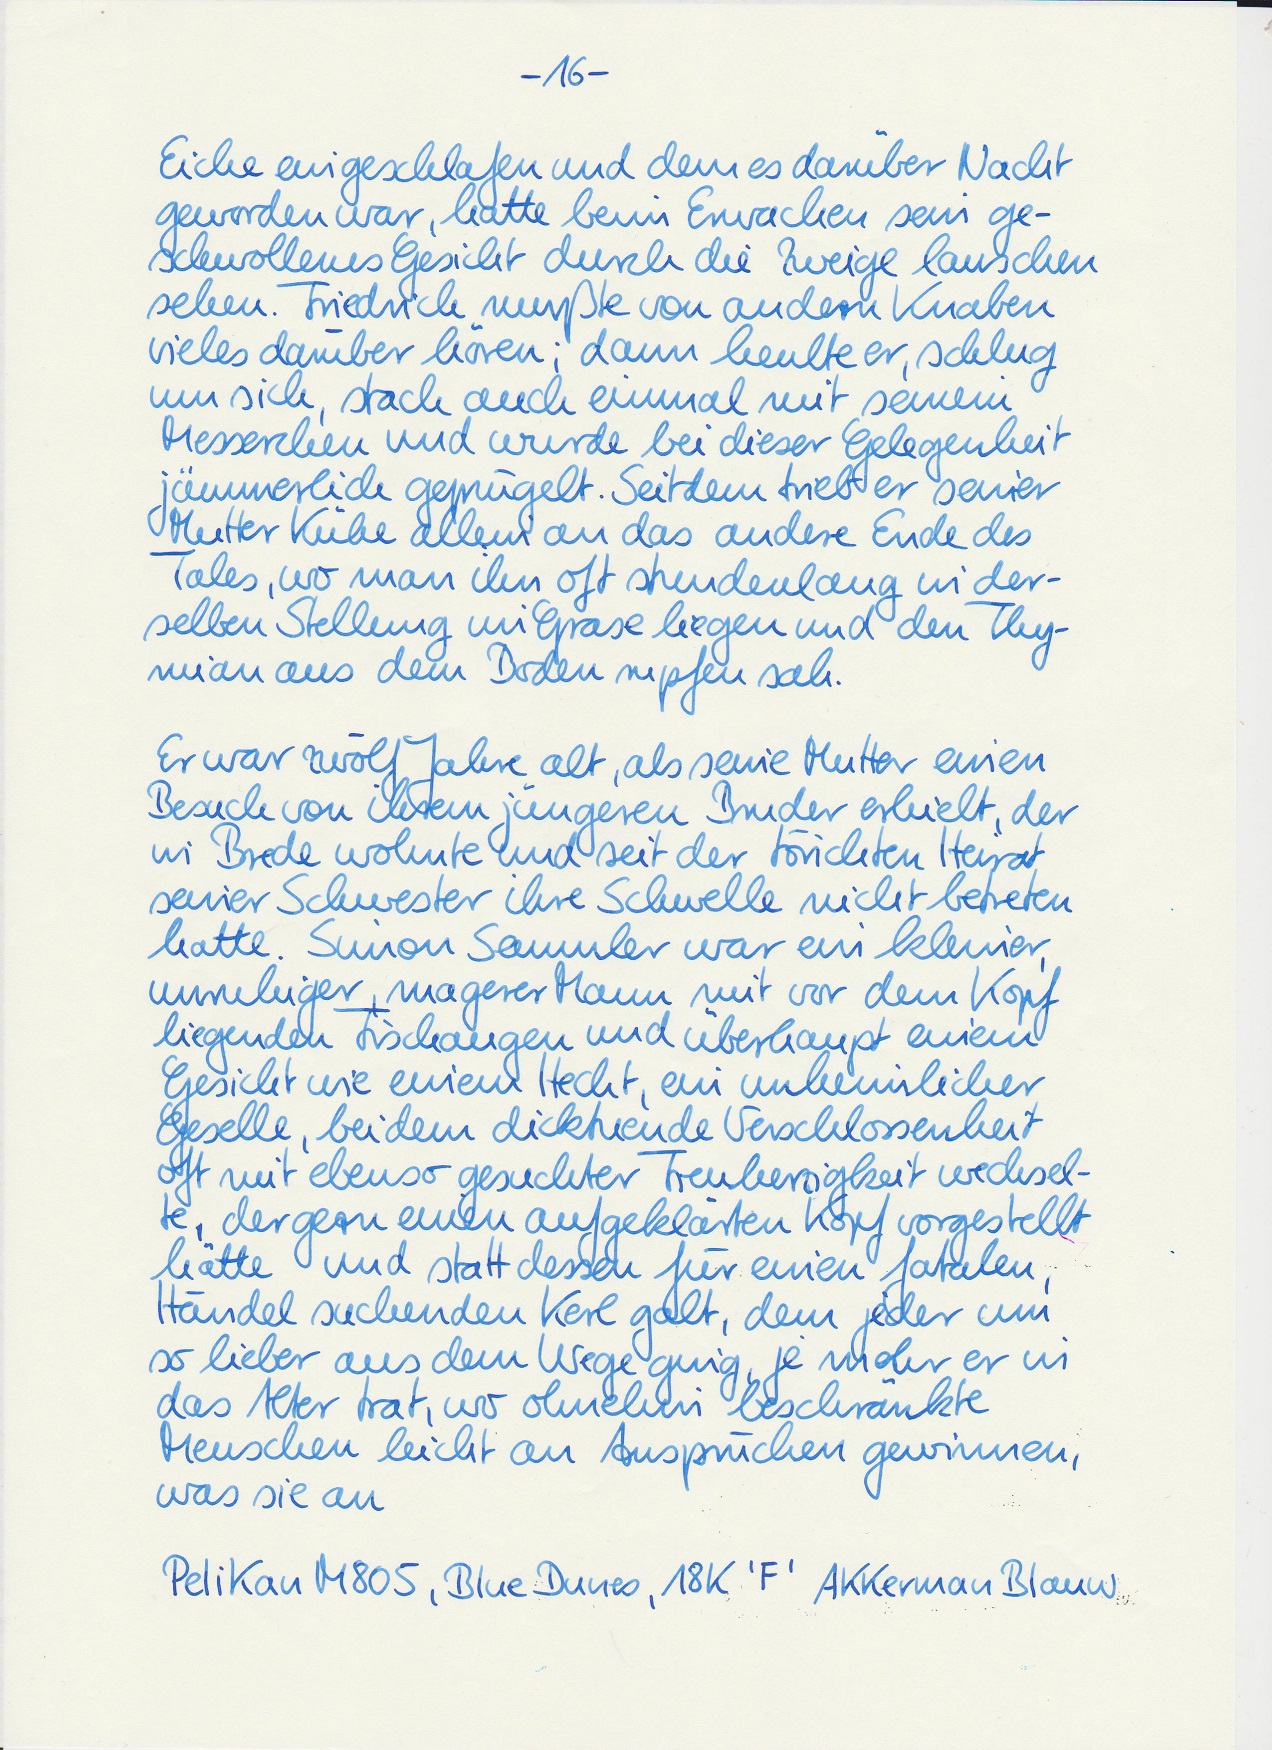 -16-
Eiche eingeschlafen und dem es darüber Nacht
geworden war, hatte beim Erwachen sein ge-
schwollenes Gesicht durch die Zweige lauschen
sehen. Friedrich mußte von andern Knaben
vieles darüber hören; dann heulte er, schlug
um sich, stach auch einmal mit seinem
Messerchen und wurde bei dieser Gelegenheit
jämmerlich geprügelt. Seitdem trieb er seiner
Mutter Kühe allein an das andere Ende des
Tales, wo man ihn oft stundenlang in der-
selben Stellung im Grase liegen und den Thy-
mian aus dem Boden rupfen sah.
Er war zwölf Jahre alt, als seine Mutter einen
Besuch von ihrem jüngeren Bruder erhielt, der
in Brede wohnte und seit der törichten Heirat
seiner Schwester ihre Schwelle nicht betreten
hatte. Simon Semmler war ein kleiner,
unruhiger, magerer Mann mit vor dem Kopf
liegenden Fischaugen und überhaupt einem
Gesicht wie einem Hecht, ein unheimlicher
Geselle, bei dem dicktuende Verschlossenheit
oft mit ebenso gesuchter Treuherzigkeit wechsel-
te, der gern einen aufgeklärten Kopf vorgestellt
hätte und statt dessen für einen fatalen,
Händel suchenden Kerl galt, dem jeder um
so lieber aus dem Wege ging, je mehr er in
das Alter trat, wo ohnehin beschränkte
Menschen leicht an Ansprüchen gewinnen,
was sie an
Pelikan M805, Blue Dunes, 18K 'F' Akkerman Blauw